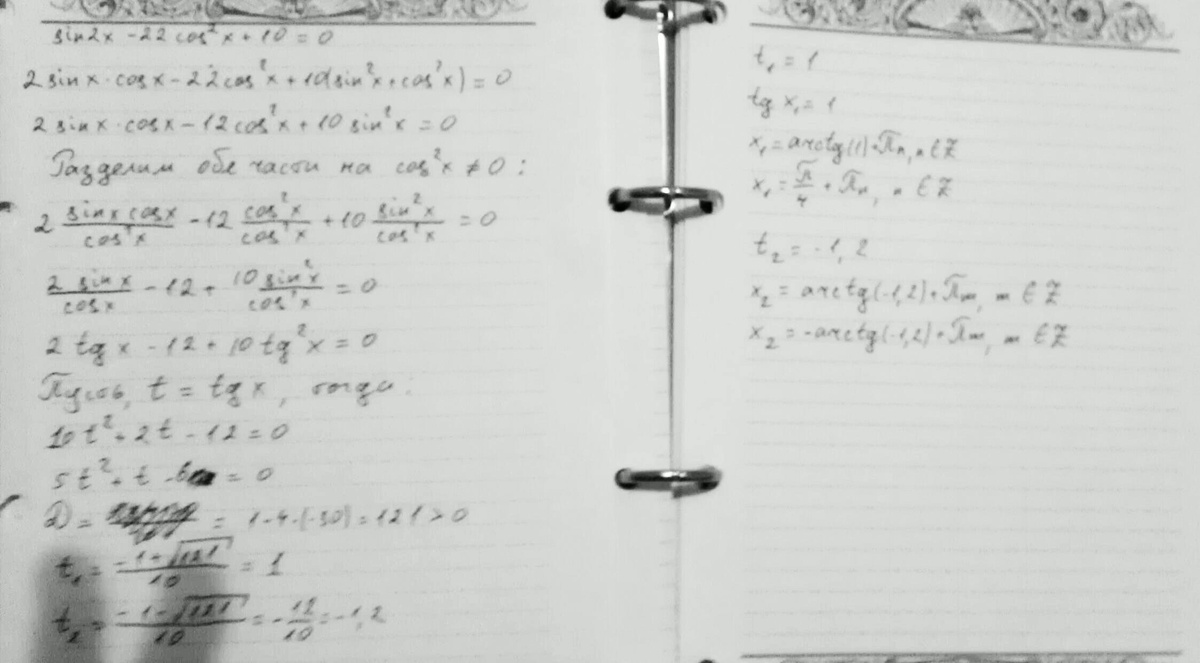 sin2x - 22cos²x + 10 = 0
2 sinx · cosx - 22cos²x + 10(sin²x + cos²x) = 0
2 sinx · cosx - 12cos²x + 10 sin²x = 0
Разделим обе части на cos²x ≠ 0 :
2 sinx cosx / cos²x - 12 cos²x / cos²x + 10 sin²x / cos²x = 0
2 sin x / cosx - 12 + 10 sin²x / cos²x = 0
2 tg x - 12 + 10 tg²x = 0
Пусть, t = tg x, тогда :
10t² + 2t - 12 = 0
5t² + t - 6 = 0
D = = 1 - 4 · (-30) = 121 > 0
t₁ = -1 + √121 / 10 = 1
t₂ = -1 - √121 / 10 = - 12 / 10 = -1,2
t₁ = 1
tg x₁ = 1
x₁ = arctg(1) + πn, n ∈ Z
x₁ = π / 4 + πn, n ∈ Z
t₂ = -1,2
x₂ = arctg(-1,2) + πm, m ∈ Z
x₂ = -arctg(-1,2) + πm, m ∈ Z